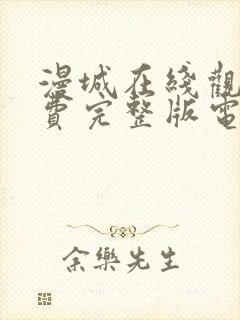 漫城在綫觀
費完整版電
余樂先生